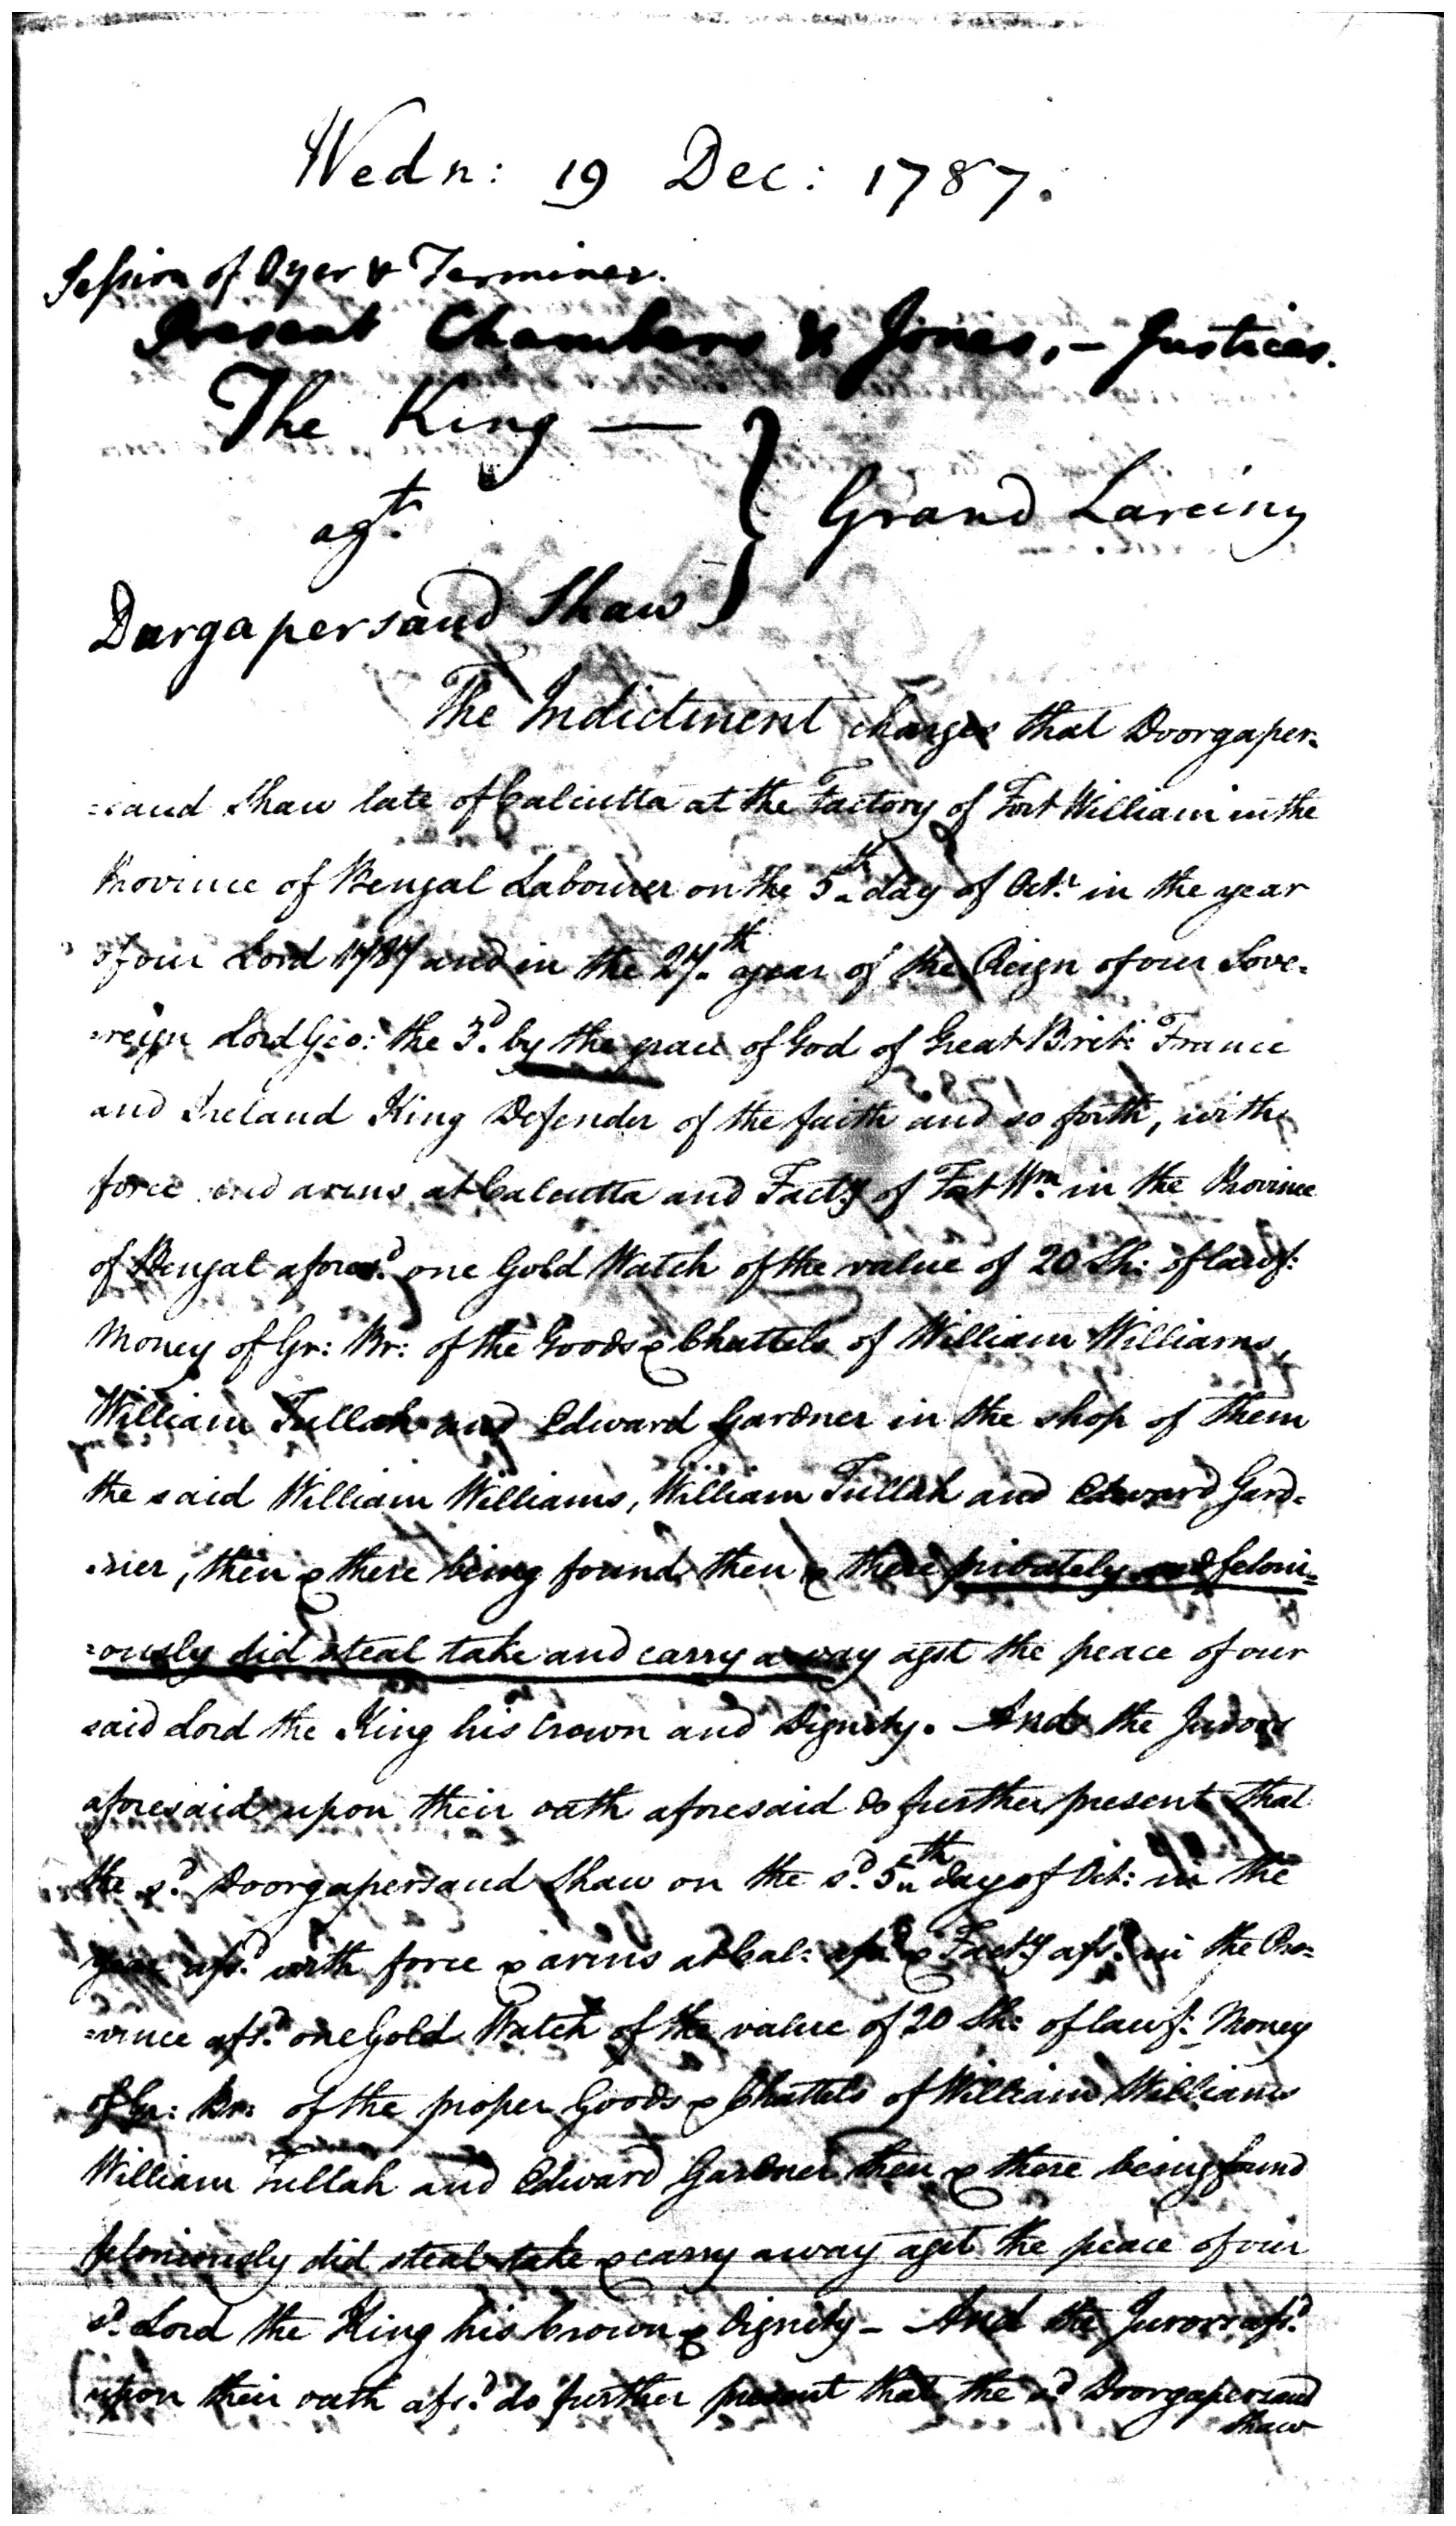 Wedn: 19 Dec: 1787.
Session of Oyer & Terminer.
Present Chambers & Jones, – Justices.
The King —
agt. } Grand Larciny
Durgapersaud Shaw
The Indictment charges that Doorgaper-
=saud Shaw late of Calcutta at the Factory of Fort William in the
Province of Bengal Labourer on the 5th day of Octr. in the year
of our Lord 1787 and in the 27th year of the Reign of our Sove-
=reign Lord Geo: the 3d. by the grace of God of Great Brit: France
and Ireland King Defender of the faith and so forth, with
force and arms at Calcutta and Facty of Fort Wm. in the Province
of Bengal aforesd. one Gold Watch of the value of 20 Sh: of lawf:
Money of Gr: Br: of the Goods & Chattels of William Williams,
William Tullah and Edward Gardner in the shop of them
the said William Williams, William Tullah and Edward Gard-
=ner, then & there being found, then & there privately and feloni=
=ously did steal take and carry away agst the peace of our
said Lord the King his Crown and Dignity. And the Jurors
aforesaid upon their oath aforesaid do further present that
the sd. Doorgapersaud Shaw on the sd. 5th day of Oct: in the
year afsd. with force & arms at Cal: afsd. & Facty afsd. in the Pro=
=vince afsd. one Gold Watch of the value of 20 Sh: of lawf: Money
of Gr: Br: of the proper Goods & Chattels of William Williams
William Tullah and Edward Gardner then & there being found
feloniously did steal take & carry away agst the peace of our
sd. Lord the King his Crown & Dignity – And the Jurors afsd.
upon their oath afsd. do further present that the sd Doorgapersaud
Shaw